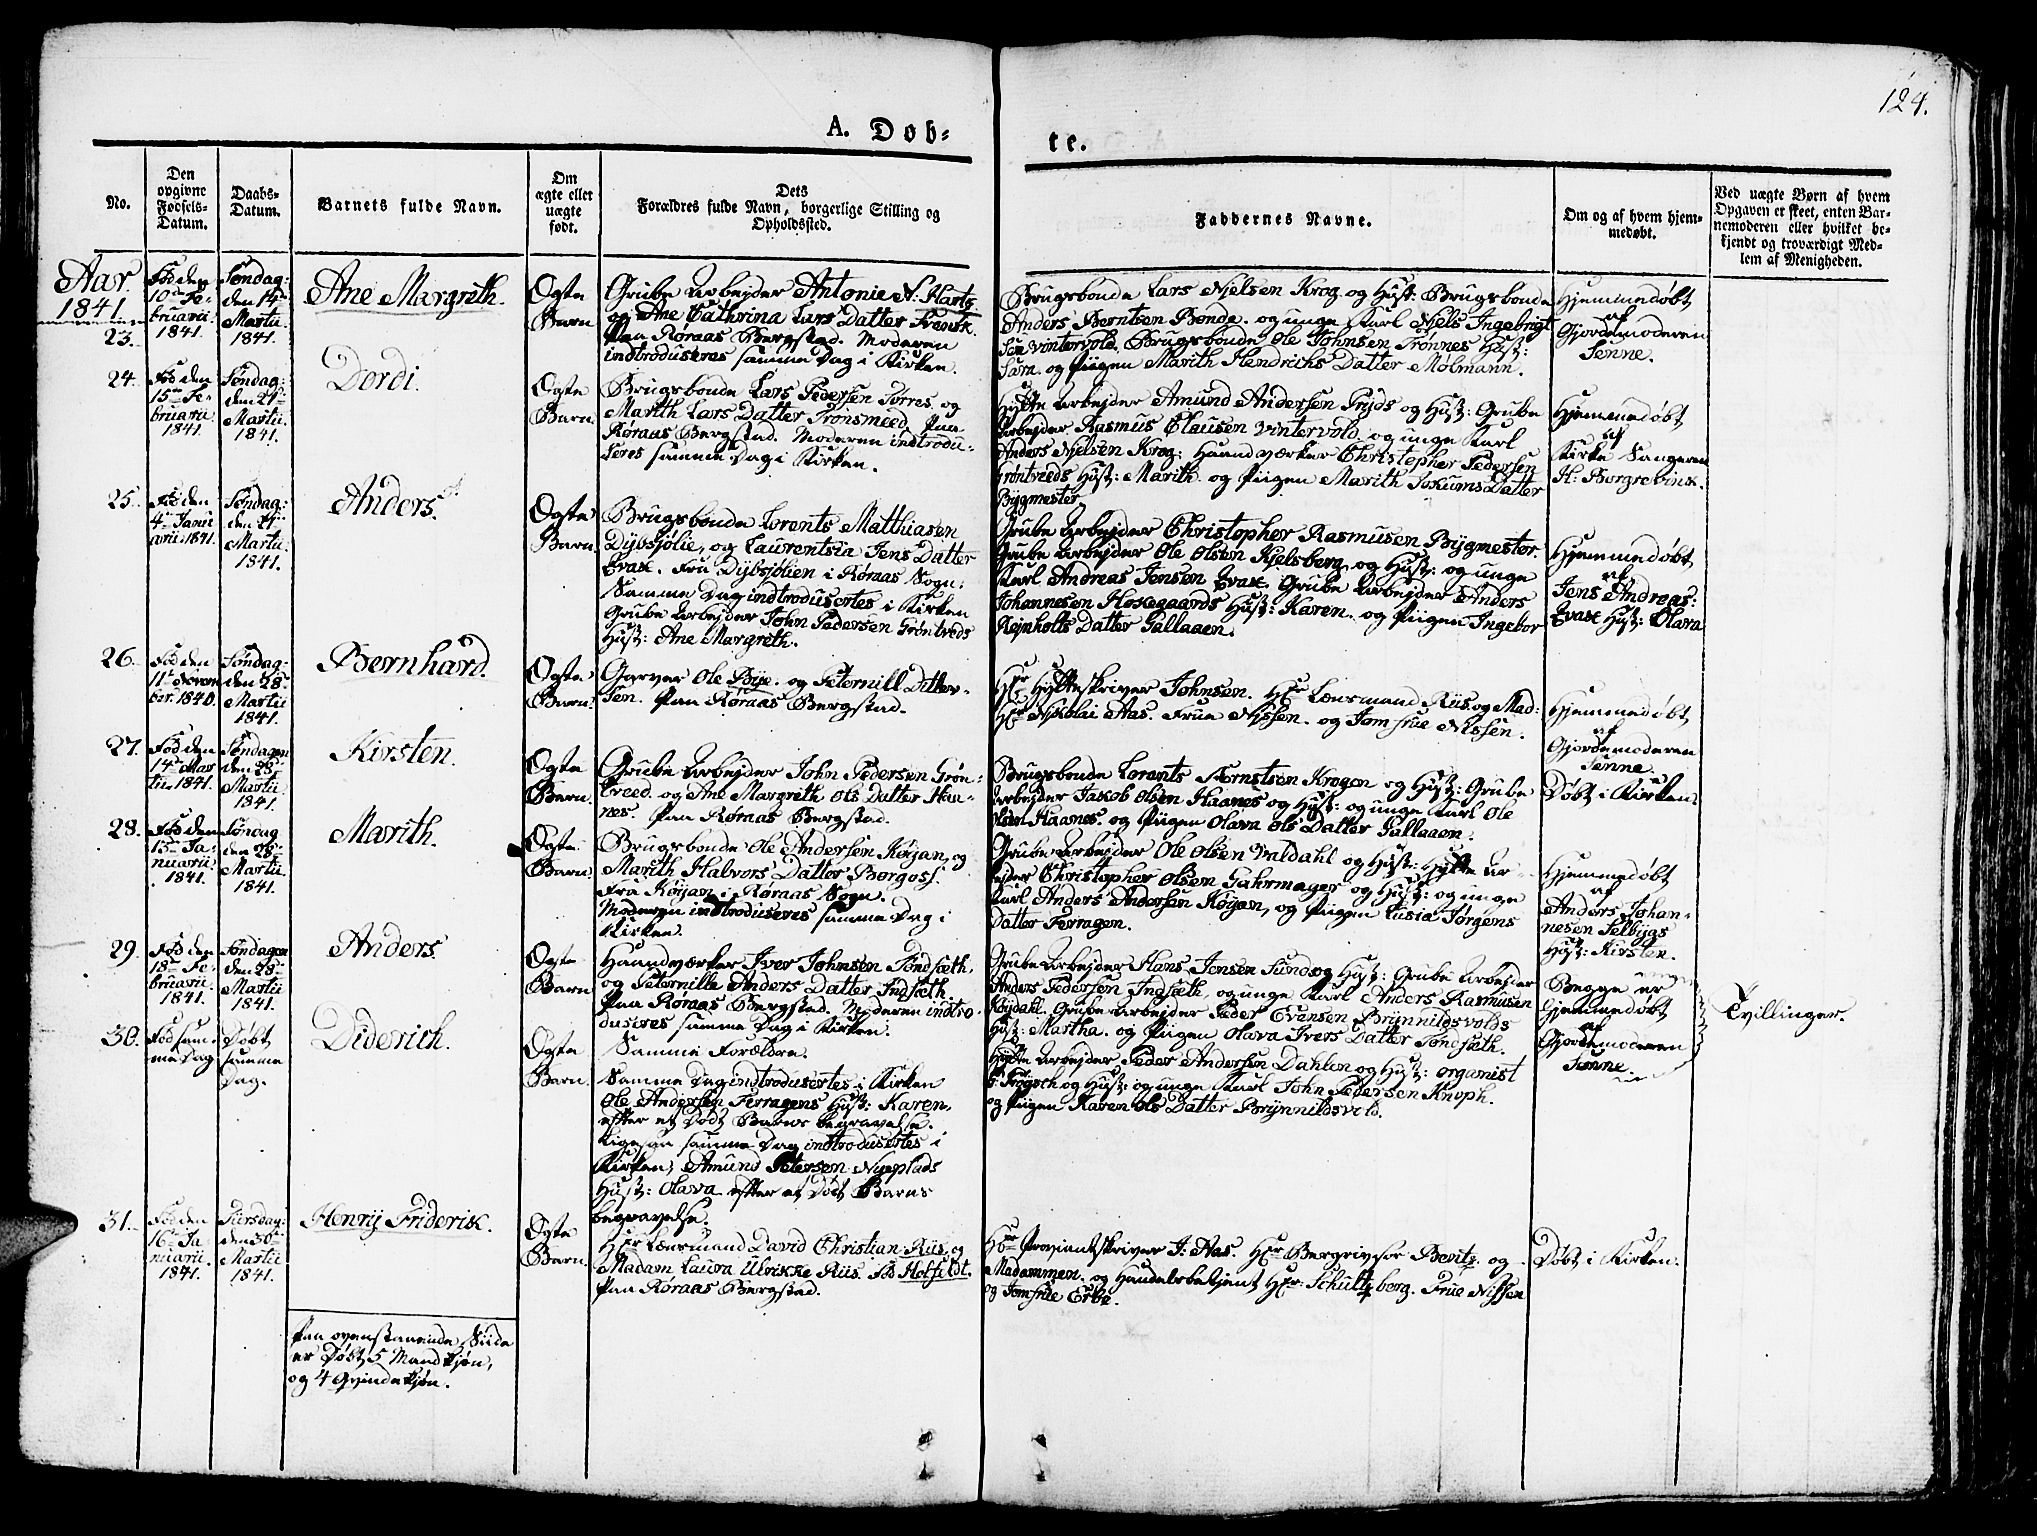 124.
A. Döb=
te.
No.
Den
opgivne
Fødsels-
Datum.
Daabs-
Datum.
Barnets fulde Navn.
Om
ægte eller
uægte
født.
Dets
Forældres fulde Navn, borgerlige Stilling og
Opholdssted.
Faddernes Navne.
Om og af hvem hjem-
medøbt.
Ved uægte Børn af hvem
Opgaven er skeet, enten Bar-
nemoderen eller hvilket be-
kjendt og troværdigt Med-
lem af Menigheden.
Aar
1841.
23.
Fød den
10de Fe-
bruarii
1841.
Søndag:
den 14de
Martii
1841.
Ane Margrith.
Ægte
Barn
Grube Arbejder Antonie N: Harts
og Ane Cathrina Lars Datter
Paa Røraas Bergstad. Moderen
indtroduseres samme Dag i Kirken.
Brugsbonde Lars Njelsen Krog. og Hust: Brugsbonde
Anders Berntsen Bonde. og unge Karl Njels Ingebrigt
Sen Vintervold. Brugsbonde Ole Johnsen Trønnes Hust:
Sara. og Piigen Marith Hendrichs Datter Mølmann.
Hjemmedøbt
af
Gjordemoderen
Tenne.
24.
Fød den
15de Fe-
bruarii
1841.
Søndag:
den 21de
Martii
1841.
Dordi.
Ægte
Barn.
Brugsbonde Lars Pedersen Torres, og
Marith Lars Datter Tronsmoed. Paa
Røraas Bergstad. Moderen indtrodu-
seres samme Dag i Kirken.
Hytte Arbejder Amund Andersen Pryds og Hust: Grube
Arbejder Rasmus Clausen Vintervold. og unge Karl
Anders Njelsen Krog: Haandværker Christopher Pedersen
Grøntveds Hust: Marith. og Piigen Marith Jokums Datter
Bygmester
Hjemmedøbt
af
Kirke Sangeren
H: Borgrevink.
25.
Fød den
4de Janu
arii 1841.
Søndag:
den 21de
Martii.
1841.
Anders.
Ægte
Barn.
Brugsbonde Lorents Matthiasen
Dybsjølie, og Laurentsia Jens Datter
Evax. Fra Dybsjølien i Røraas Sogn:
Samme Dag indtrodusertes i Kirken
Grube Arbejder John Pedersen Grøntveds
Hust: Ane Margreth.
Grube Arbejder Christopher Rasmusen Bygmester.
Grube Arbejder Ole Olsen Kjelsberg, og Hust: og unge
Karl Andreas Jensen Evax. Grube Arbejder Anders
Johannesen Hosegaards Hust: Karen. og Piigen Ingebor
Rejnholts Datter Gallaaen.
Hjemmedøbt
af
Jens Andreas:
Evax Hust: Olava
26.
Fød den
11te Novem
ber. 1840.
Søndag:
den 28de
Martii
1841.
Bernhard.
Ægte
Barn.
Garver Ole Bye. og Peternill Ditlev-
sen. Paa Røraas Bergstad.
Hr Hytteskriver Johnsen. Hr Lænsmand Riis og Mad:
Hr Nikolai Aas. Frue Nissen. og Jomfrue Nissen.
Hjemmedøbt
af
Gjordemoderen
Tenne.
27.
Fød den
14de Mar
tii 1841.
Søndagen
den 28de
Martii
1841.
Kirsten.
Ægte
Barn.
Grube Arbejder John Pedersen Grøn-
treed. og Ane Margrith Ols Datter Haa-
nes. Paa Røraas Bergstad.
Brugsbonde Lorents Berntsen Krogen og Hust: Grube
Arbejder Jakob Olsen Haanes og Hust: og unge Karl Ole
Olsen Haanes. og Piigen Olava Ols Datter Gallaaen.
Døbt i Kirken.
28.
Fød den
15de Ja-
nuarii
1841.
Søndag
den 28de
Martii
1841.
Marith.
Ægte
Barn.
Brugsbonde Ole Andersen Køjan, og
Marith Halvors Datter Borgos.
Fra Køjan i Røraas Sogn.
Moderen indtroduseres samme Dag i
Kirken.
Grube Arbejder Ole Olsen Valdahl og Hust: Hytte Ar-
bejder Christopher Olsen Gahrmager og Hust: og unge
Karl Anders Andersen Køjan, og Piigen Lusia Jørgens
Datter Ferragen.
Hjemmedøbt
af
Anders Johan-
nesen Selbygs
Hust: Kirsten.
29.
Fød den
18de Fe-
bruarii
1841.
Søndagen
den 28de
Martii
1841.
Anders.
Ægte
Barn
Haandværker Iver Johnsen Søndsæth.
og Peternille Anders Datter Indsæth
Paa Røraas Bergstad. Moderen indtro-
duseres samme Dag i Kirken.
Grube Arbejder Hans Jensen Sunds og Hust: Grube Arbejder
Anders Pedersen Ingsæth, og unge Karl Anders Rasmusen
Køjdahl. Grube Arbejder Peder Evensen Brynnildsvolds
Hust: Martha. og Piigen Olava Ivers Datter Søndsæth.
Begge er
Hjemmedøbt
af
Gjordemoderen
Tenne.
Tvillinger.
30.
Fød sam-
me Dag
Døbt
samme
Dag.
Diderich.
Ægte
Barn.
Samme Forældre.
Samme Dag indtrodusertes i Kirken
Ole Andersen Ferragens Hust: Karen,
efter et Dødt Barns begravelse.
Ligesaa samme Dag indtrodusertes i
Kirken, Amund Petersen Nyeplads
Hust: Olava. efter et Dødt Barns
begravelse.
Hytte Arbejder Peder Andersen Dahlen og Hust: organist
og Hust: og unge Karl John Pedersen Knoph.
og Piigen Karen Ols Datter Brynnildsvold.
31.
Fød den
16de Ja
nuarii.
1841.
Tiirsdag:
den 30de
Martii
1841.
Henry Friderik.
Ægte
Barn.
Hr Lænsmand David Christian Riis, og
Madam Laura Ulrikke Riis. fød Holfeldt.
Paa Røraas Bergstad.
Hr Proviantskriver J: Aas. Hr Bergrivsor Bentz. og
Madammen. og Handelsbetjent Hr: Schultzberg. Frue Nissen
og Jomfrue Erbe.
Døbt i Kirken.
Paa ovenstaaende Siide
er Døbt 5 Mandkjøn,
og 4 Qvindekjøn.